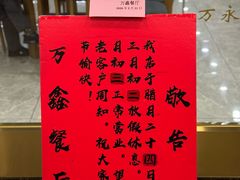 万鑫餐厅
万永
敬告
我店于腊月二十四
月初二放假休息。
月初三正常营业。望
老客户周知。祝大家
节愉快！
万鑫餐厅